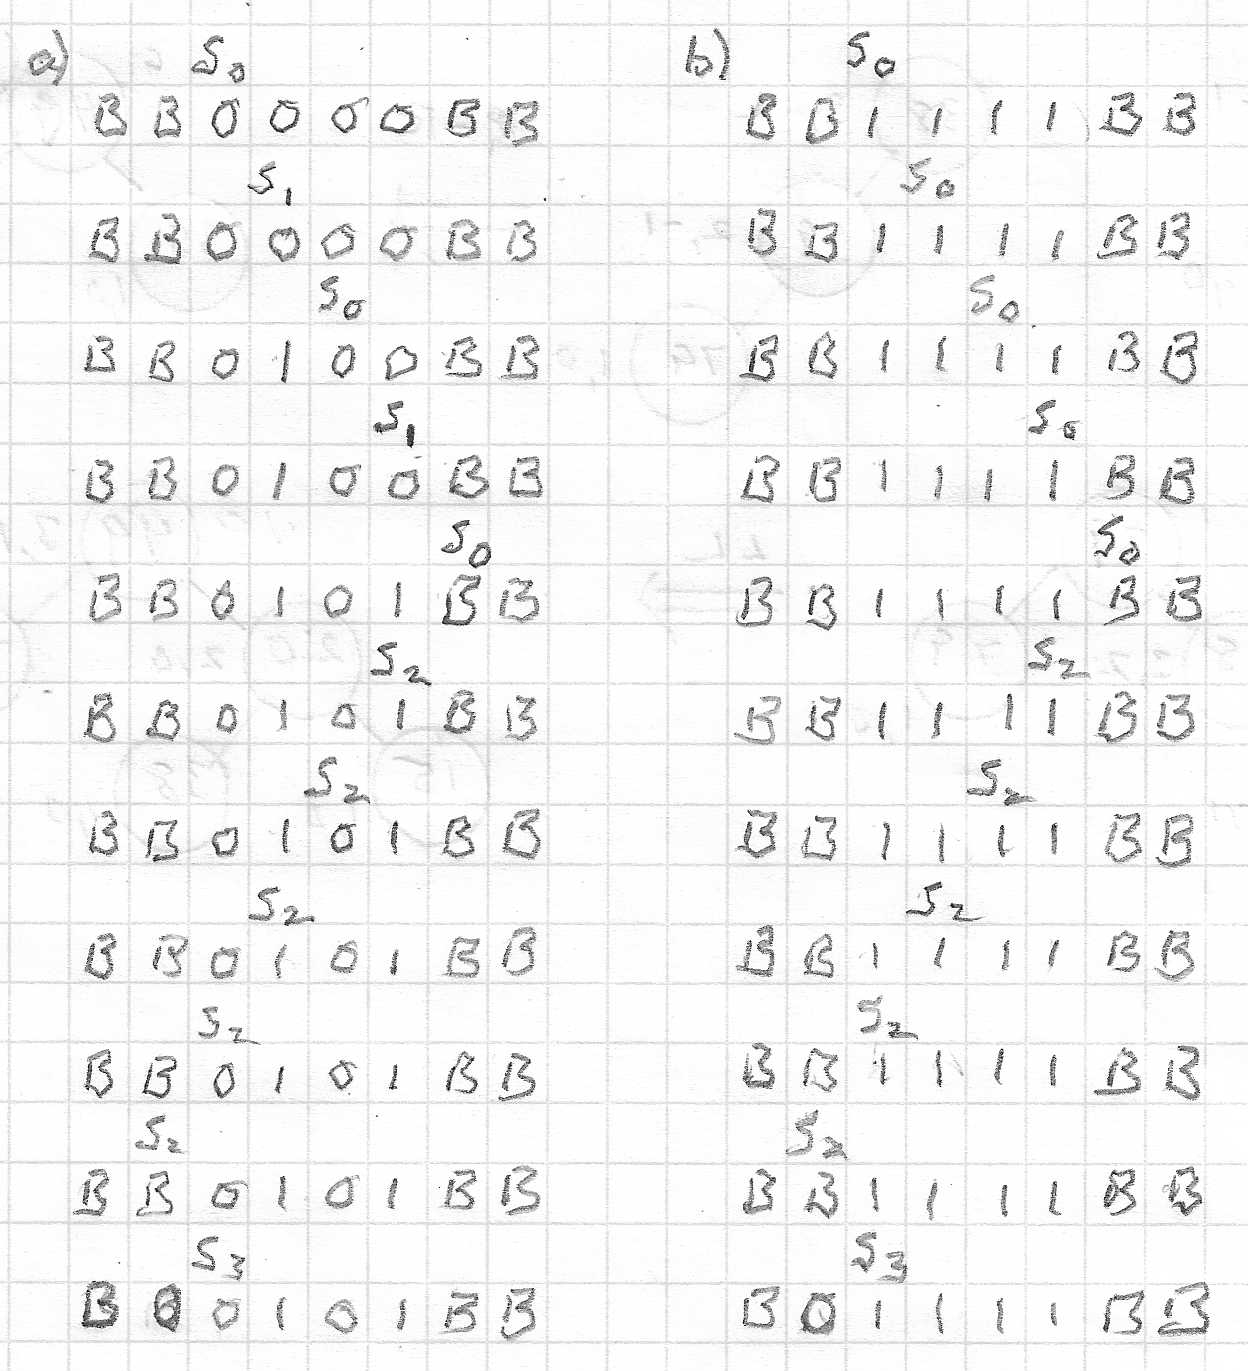 a) S₀
B B 0 0 0 0 B B
S₁
B B 0 0 0 0 B B
S₀
B B 0 1 0 0 B B
S₁
B B 0 1 0 0 B B
S₀
B B 0 1 0 1 B B
S₂
B B 0 1 0 1 B B
S₂
B B 0 1 0 1 B B
S₂
B B 0 1 0 1 B B
S₂
B B 0 1 0 1 B B
S₂
B B 0 1 0 1 B B
S₃
B 0 0 1 0 1 B B
b) S₀
B B 1 1 1 1 B B
S₀
B B 1 1 1 1 B B
S₀
B B 1 1 1 1 B B
S₀
B B 1 1 1 1 B B
S₀
B B 1 1 1 1 B B
S₂
B B 1 1 1 1 B B
S₂
B B 1 1 1 1 B B
S₂
B B 1 1 1 1 B B
S₂
B B 1 1 1 1 B B
S₂
B B 1 1 1 1 B B
S₃
B 0 1 1 1 1 B B